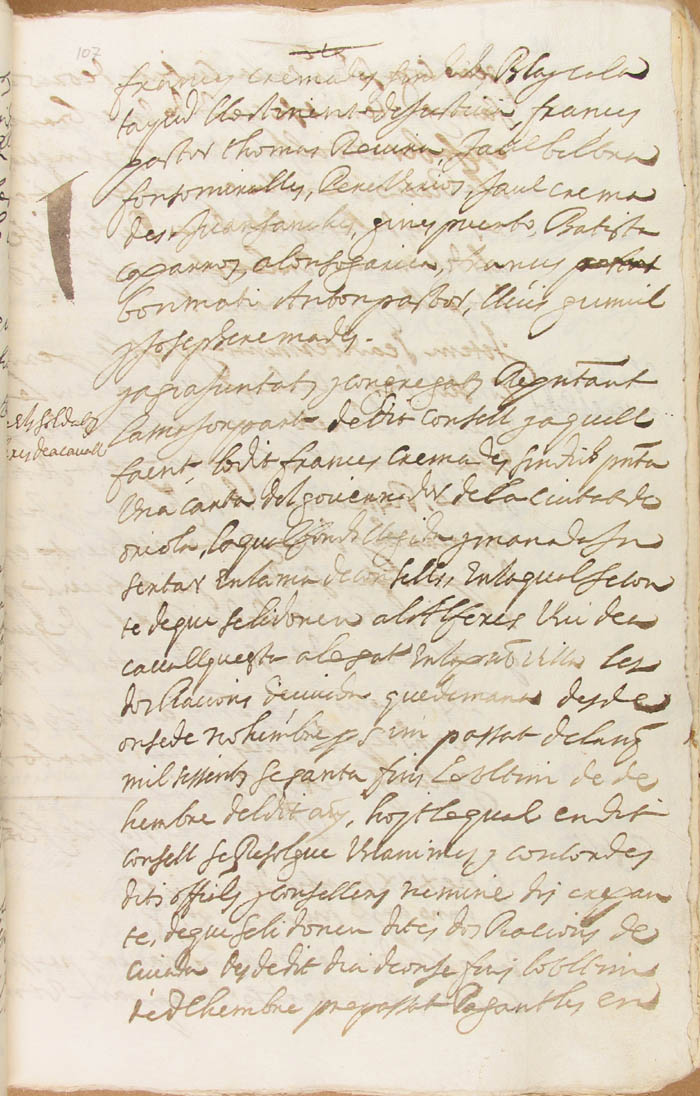 107
frances cremades sindich Blay cala
tayud llostinent de Justicia, frances
pastor thomas Revira, Jaume bellbra
fons miralles, Pere Jaume crema
des Juan sanches, gines puerto, Batista
caparros, alonso garcia, frances
bonmati Anton pastor, lluis gumiel
y Joseph cremades.
ya ajuntats y congregats Reprntant
la major part de dit consell y aquell
fent, lo dit frances cremades sindich pnta
Una carta del governador de la ciutat de
oriola, la qual fonch llegida y mana de in
sertar en la ma de consells, en la qual se con
te de que se li donen al Alferes Uni de a
cavall que esta alojat en la pnt Villa les
dos Racions de civada que demana desde
onse de nohembre p s im passat del any
mil sissents sexanta fins lo ultim de de
hembre del dit any, hoyt lo qual en dit
consell se Resolgue Unanimes y concordes
dits officils y consellers nemine dis crepan
te, de que se li donen dites dos Racions de
civada desde dit dia d onse fins lo ultim
de dehembre prepassat Pagantles en
Als soldats
de a cavall